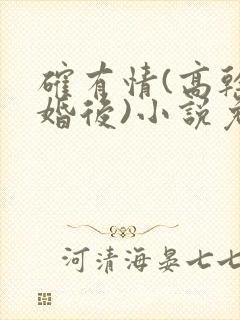 確有情(高幹
婚後)小説免
河清海晏七七